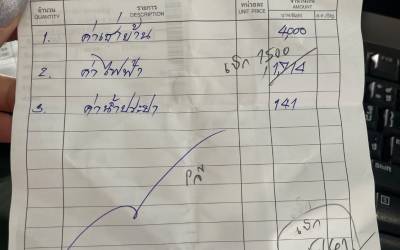 จำนวน รายการ หน่วยละ จำนวนเงิน
QUANTITY DESCRIPTION UNIT PRICE AMOUNT
1. ค่าเช่าบ้าน 4000
เช็ก 1500
2. ค่าไฟฟ้า 1,714
3. ค่าน้ำประปา 141
เช็ก